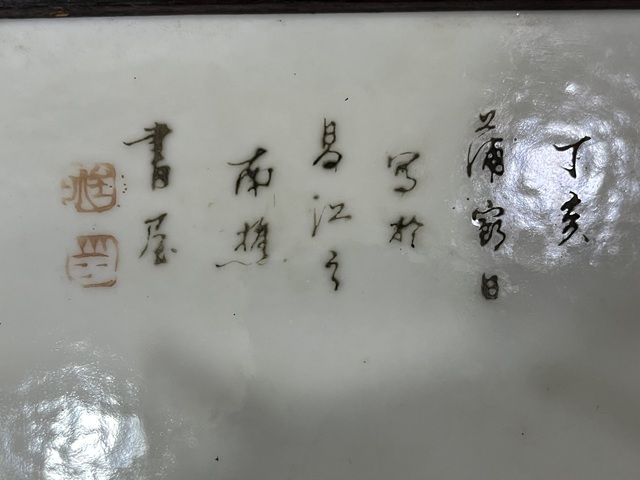 丁亥
蒲日
寫於
昌江之
南樵
書屋